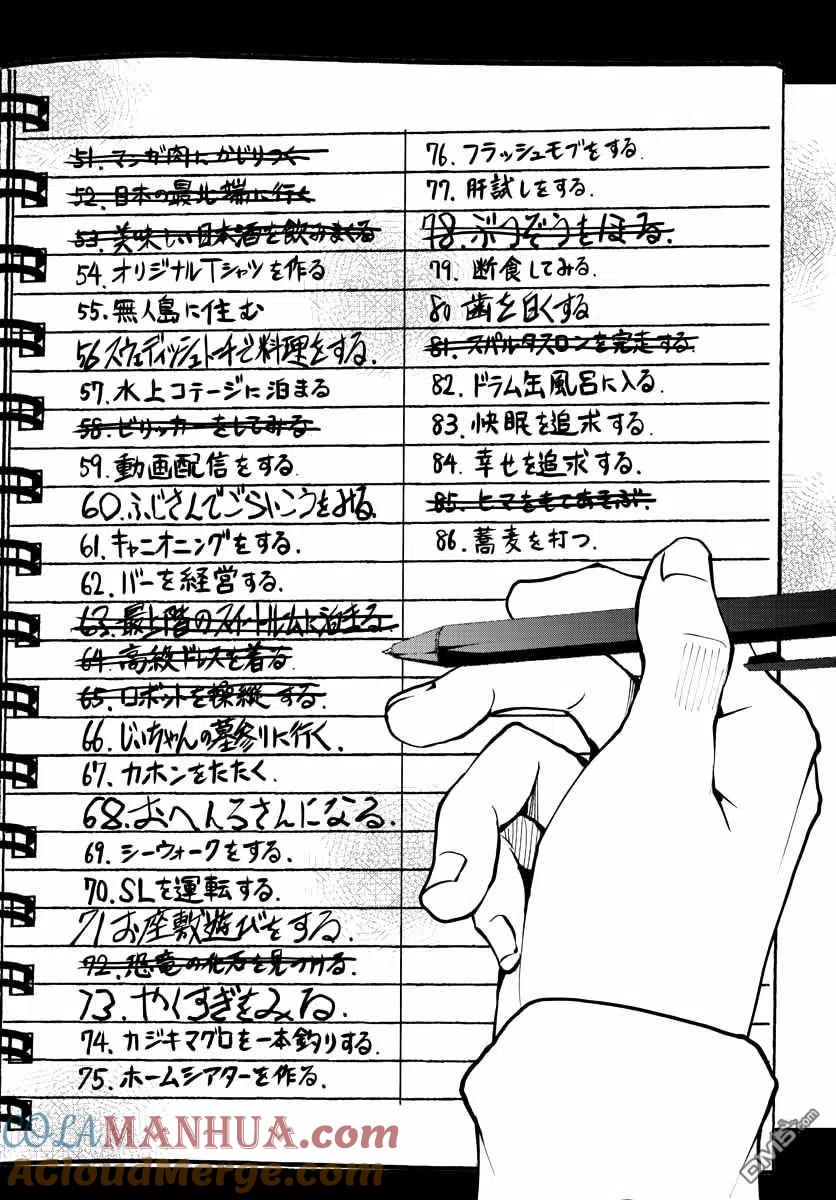 51. マンガ肉にかじりつく
52. 日本の最北端に行く
53. 美味しい日本酒を飲みまくる
54. オリジナルTシャツを作る
55. 無人島に住む
56 スウェディッシュトーチで料理をする.
57. 水上コテージに泊まる
58. ビリッカーをしてみる
59. 動画配信をする.
60. ふじさんでごらいこうをみる.
61. キャニオニングをする.
62. バーを経営する.
63. 最上階のスイートルームに泊まる
64. 高級ドレスを着る
65. ロボットを操縦する
66. じいちゃんの墓参りに行く.
67. カホンをたたく.
68. おへんろさんになる.
69. シーウォークをする.
70. SLを運転する.
71 お座敷遊びをする.
72. 恐竜の化石を見つける.
73. やくすぎをみる.
74. カジキマグロを一本釣りする.
75. ホームシアターを作る.
76. フラッシュモブをする.
77. 肝試しをする.
78. ぶつぞうをほる.
79. 断食してみる.
80 歯を白くする
81. スパルタスロンを完走する
82. ドラム缶風呂に入る.
83. 快眠を追求する.
84. 幸せを追求する.
85. ヒマをもてあそぶ.
86. 蕎麦を打つ.
COLAMANHUA.com
ACloudMerge.com